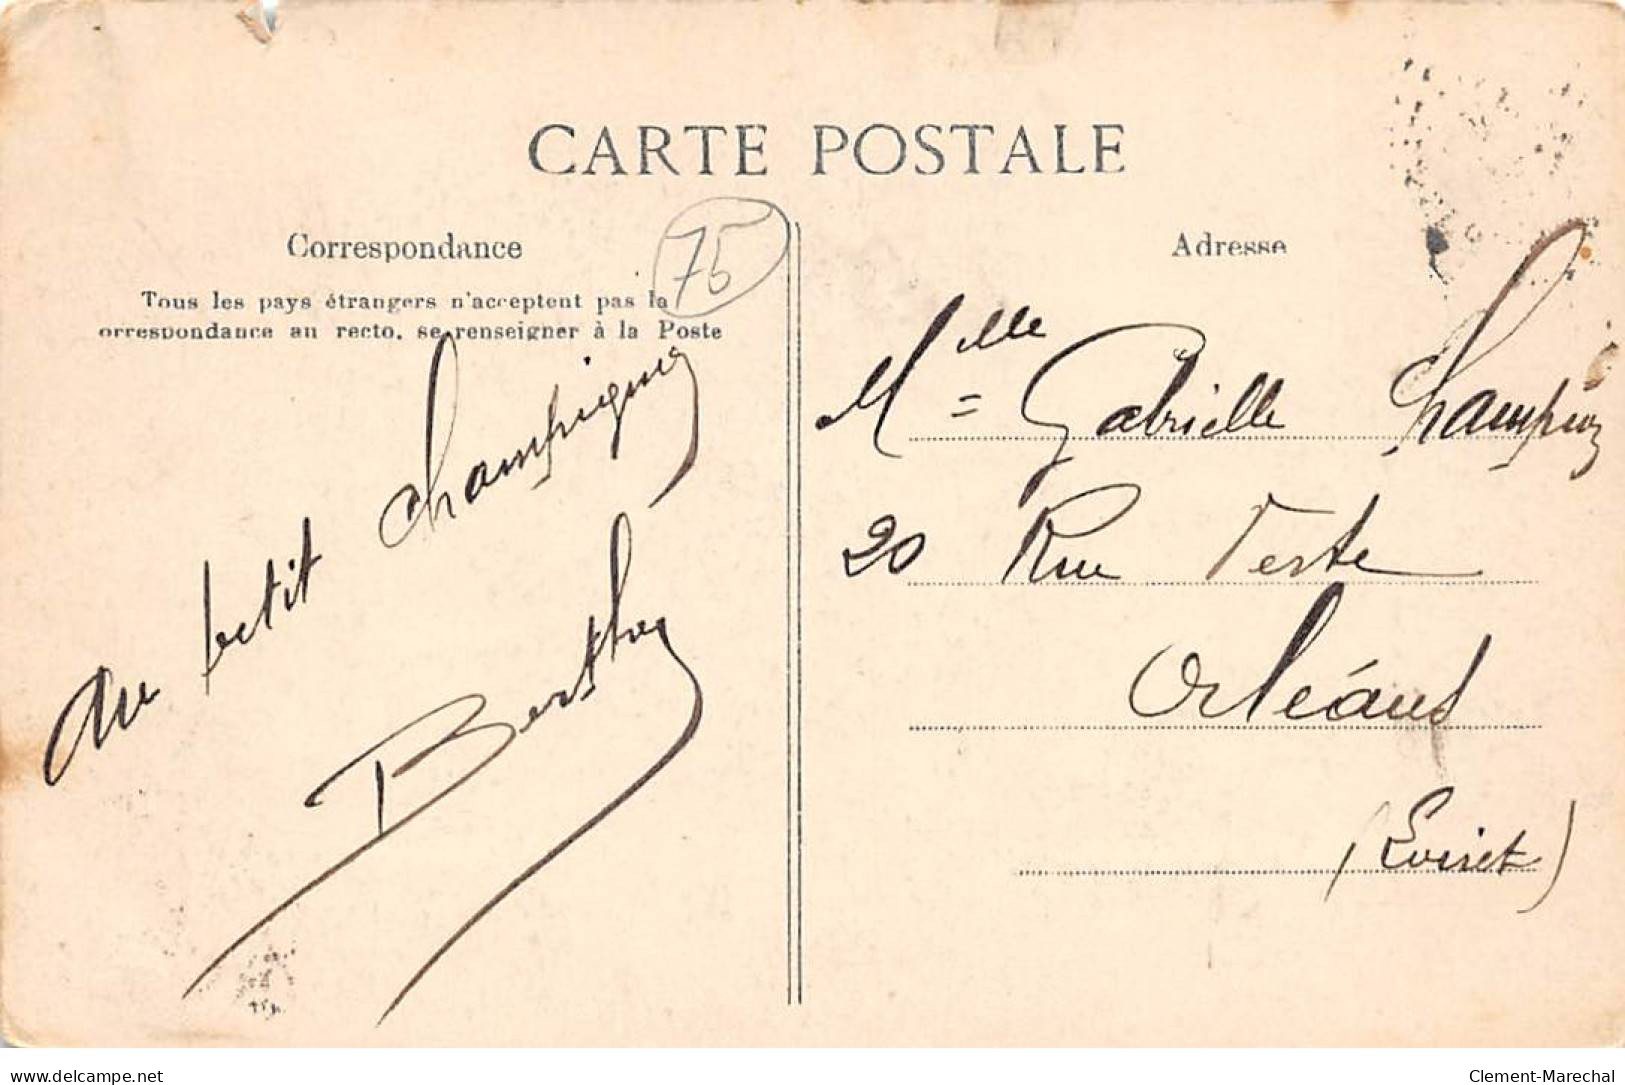 CARTE POSTALE
Correspondance
75
Tous les pays étrangers n'acceptent pas la
orrespondance au recto, se renseigner à la Poste
au petit champigny
Berthe
Adresse
Mlle Gabrielle
20 Rue Verte
Orléans
(Loiret)
www.delcampe.net
Clement-Marechal